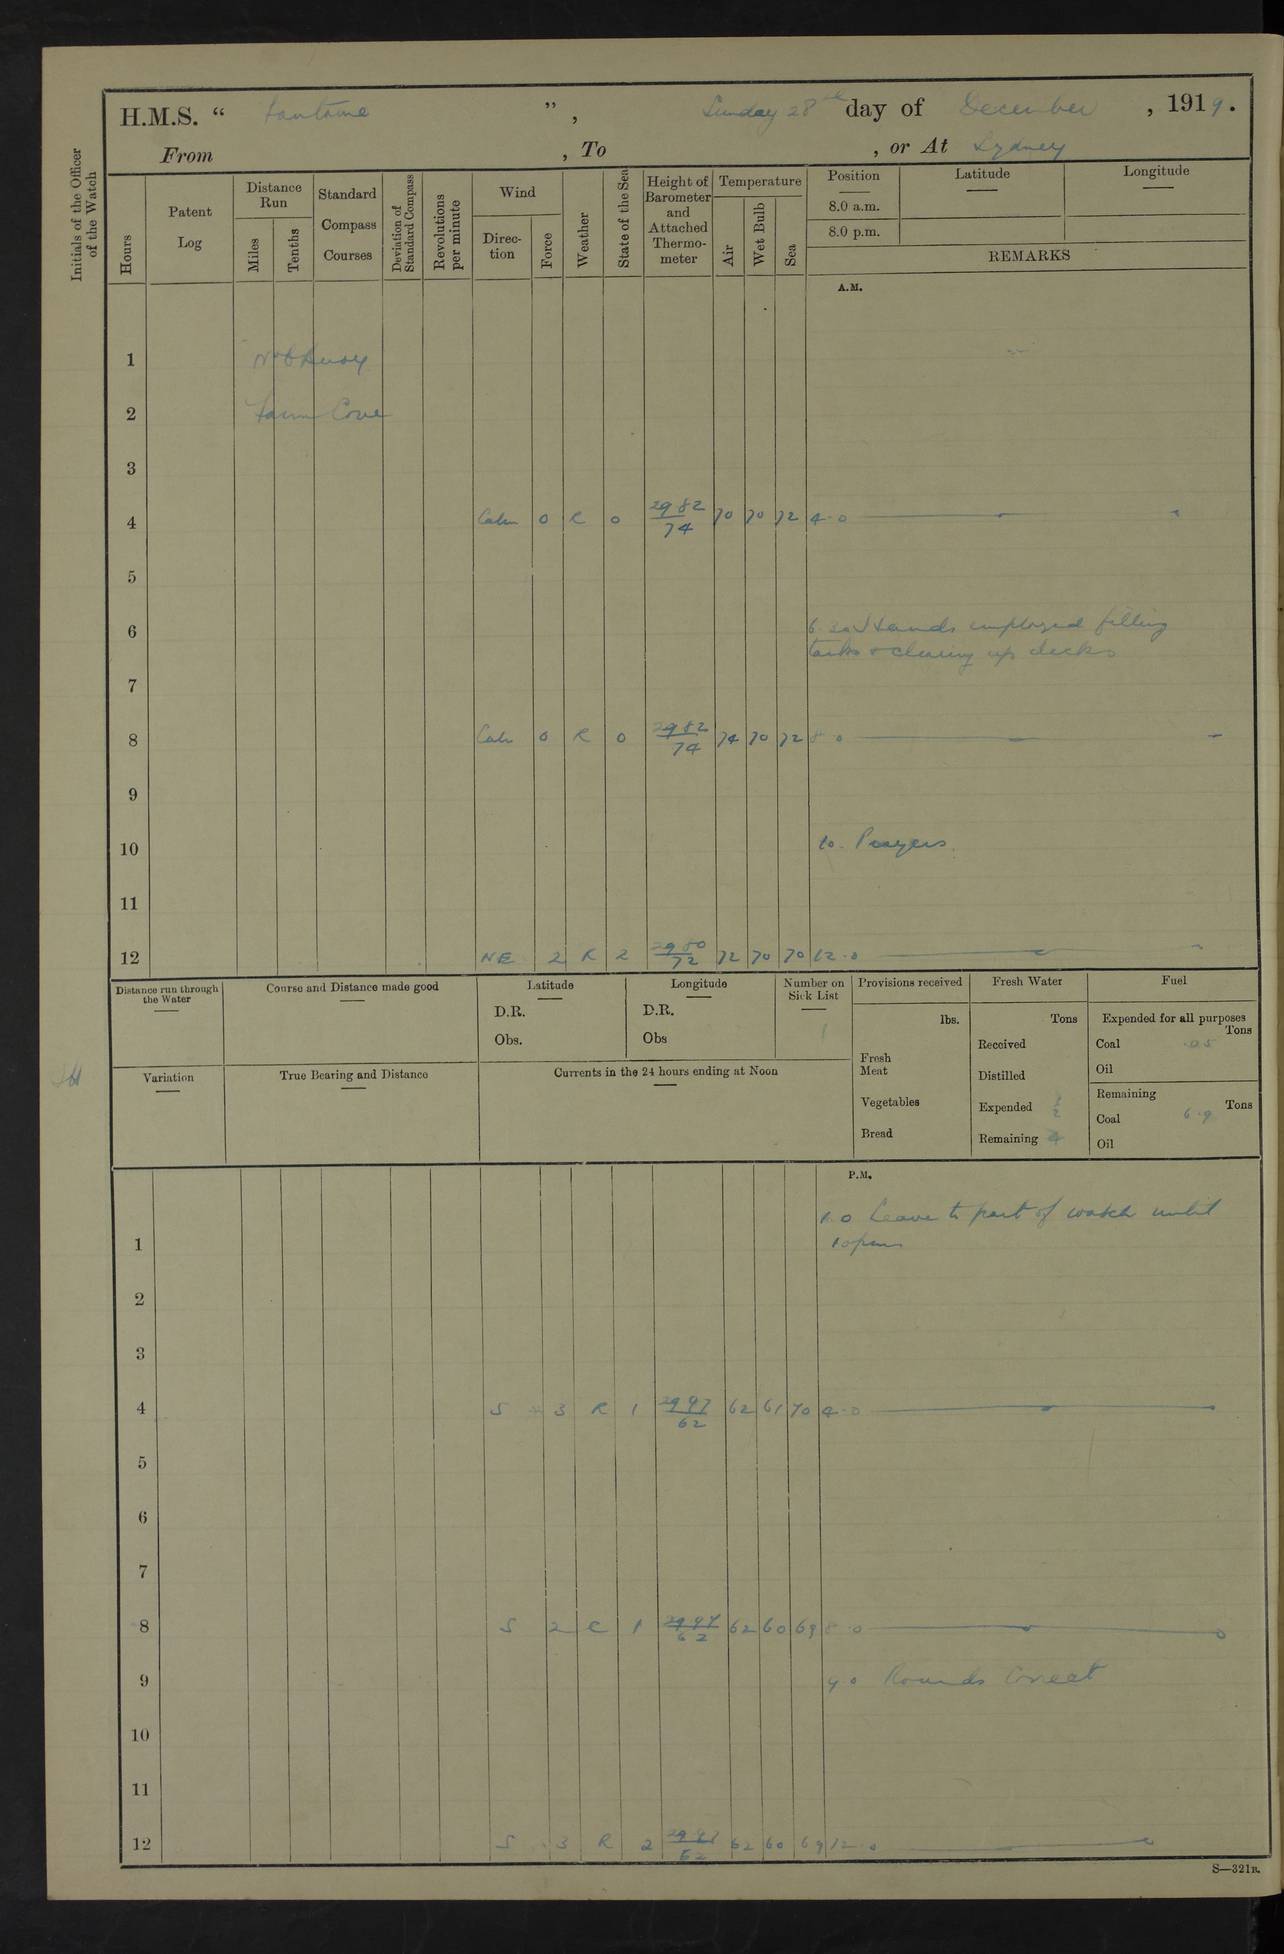 H.M.S. “ Fantome ” , Sunday 28th day of December , 1919.
From , To , or At Sydney
Initials of the Officer of the Watch
Hours
Patent Log
Distance Run
Miles
Tenths
Standard Compass Courses
Deviation of Standard Compass
Revolutions per minute
Wind
Direction
Force
Weather
State of the Sea
Height of Barometer and Attached Thermometer
Temperature
Air
Wet Bulb
Sea
Position
8.0 a.m.
8.0 p.m.
Latitude
Longitude
REMARKS
A.M.
1 No 6 Buoy
2 Farm Cove
3
4 Calm 0 R 0 29 82 / 74 70 70 72 4.0
5
6 6.30 Hands employed filling
tanks & clearing up decks
7
8 Calm 0 R 0 29 82 / 74 74 70 72 8.0
9
10 10. Prayers.
11
12 NE 2 R 2 29 80 / 72 72 70 70 12.0
Distance run through the Water
Course and Distance made good
Latitude
D.R.
Obs.
Longitude
D.R.
Obs
Number on Sick List
1
Provisions received
lbs.
Fresh Meat
Vegetables
Bread
Fresh Water
Tons
Received
Distilled
Expended ½
Remaining 4
Fuel
Expended for all purposes
Tons
Coal .05
Oil
Remaining
Tons
Coal 6.9
Oil
Variation
True Bearing and Distance
Currents in the 24 hours ending at Noon
P.M.
1.0 Leave to part of watch until
1 10pm
2
3
4 S 3 R 1 29 97 / 62 62 61 70 4.0
5
6
7
8 S 2 C 1 29 97 / 62 62 60 69 8.0
9 9.0 Rounds Correct
10
11
12 S 3 R 2 62 62 60 69 12.0
S—321B.